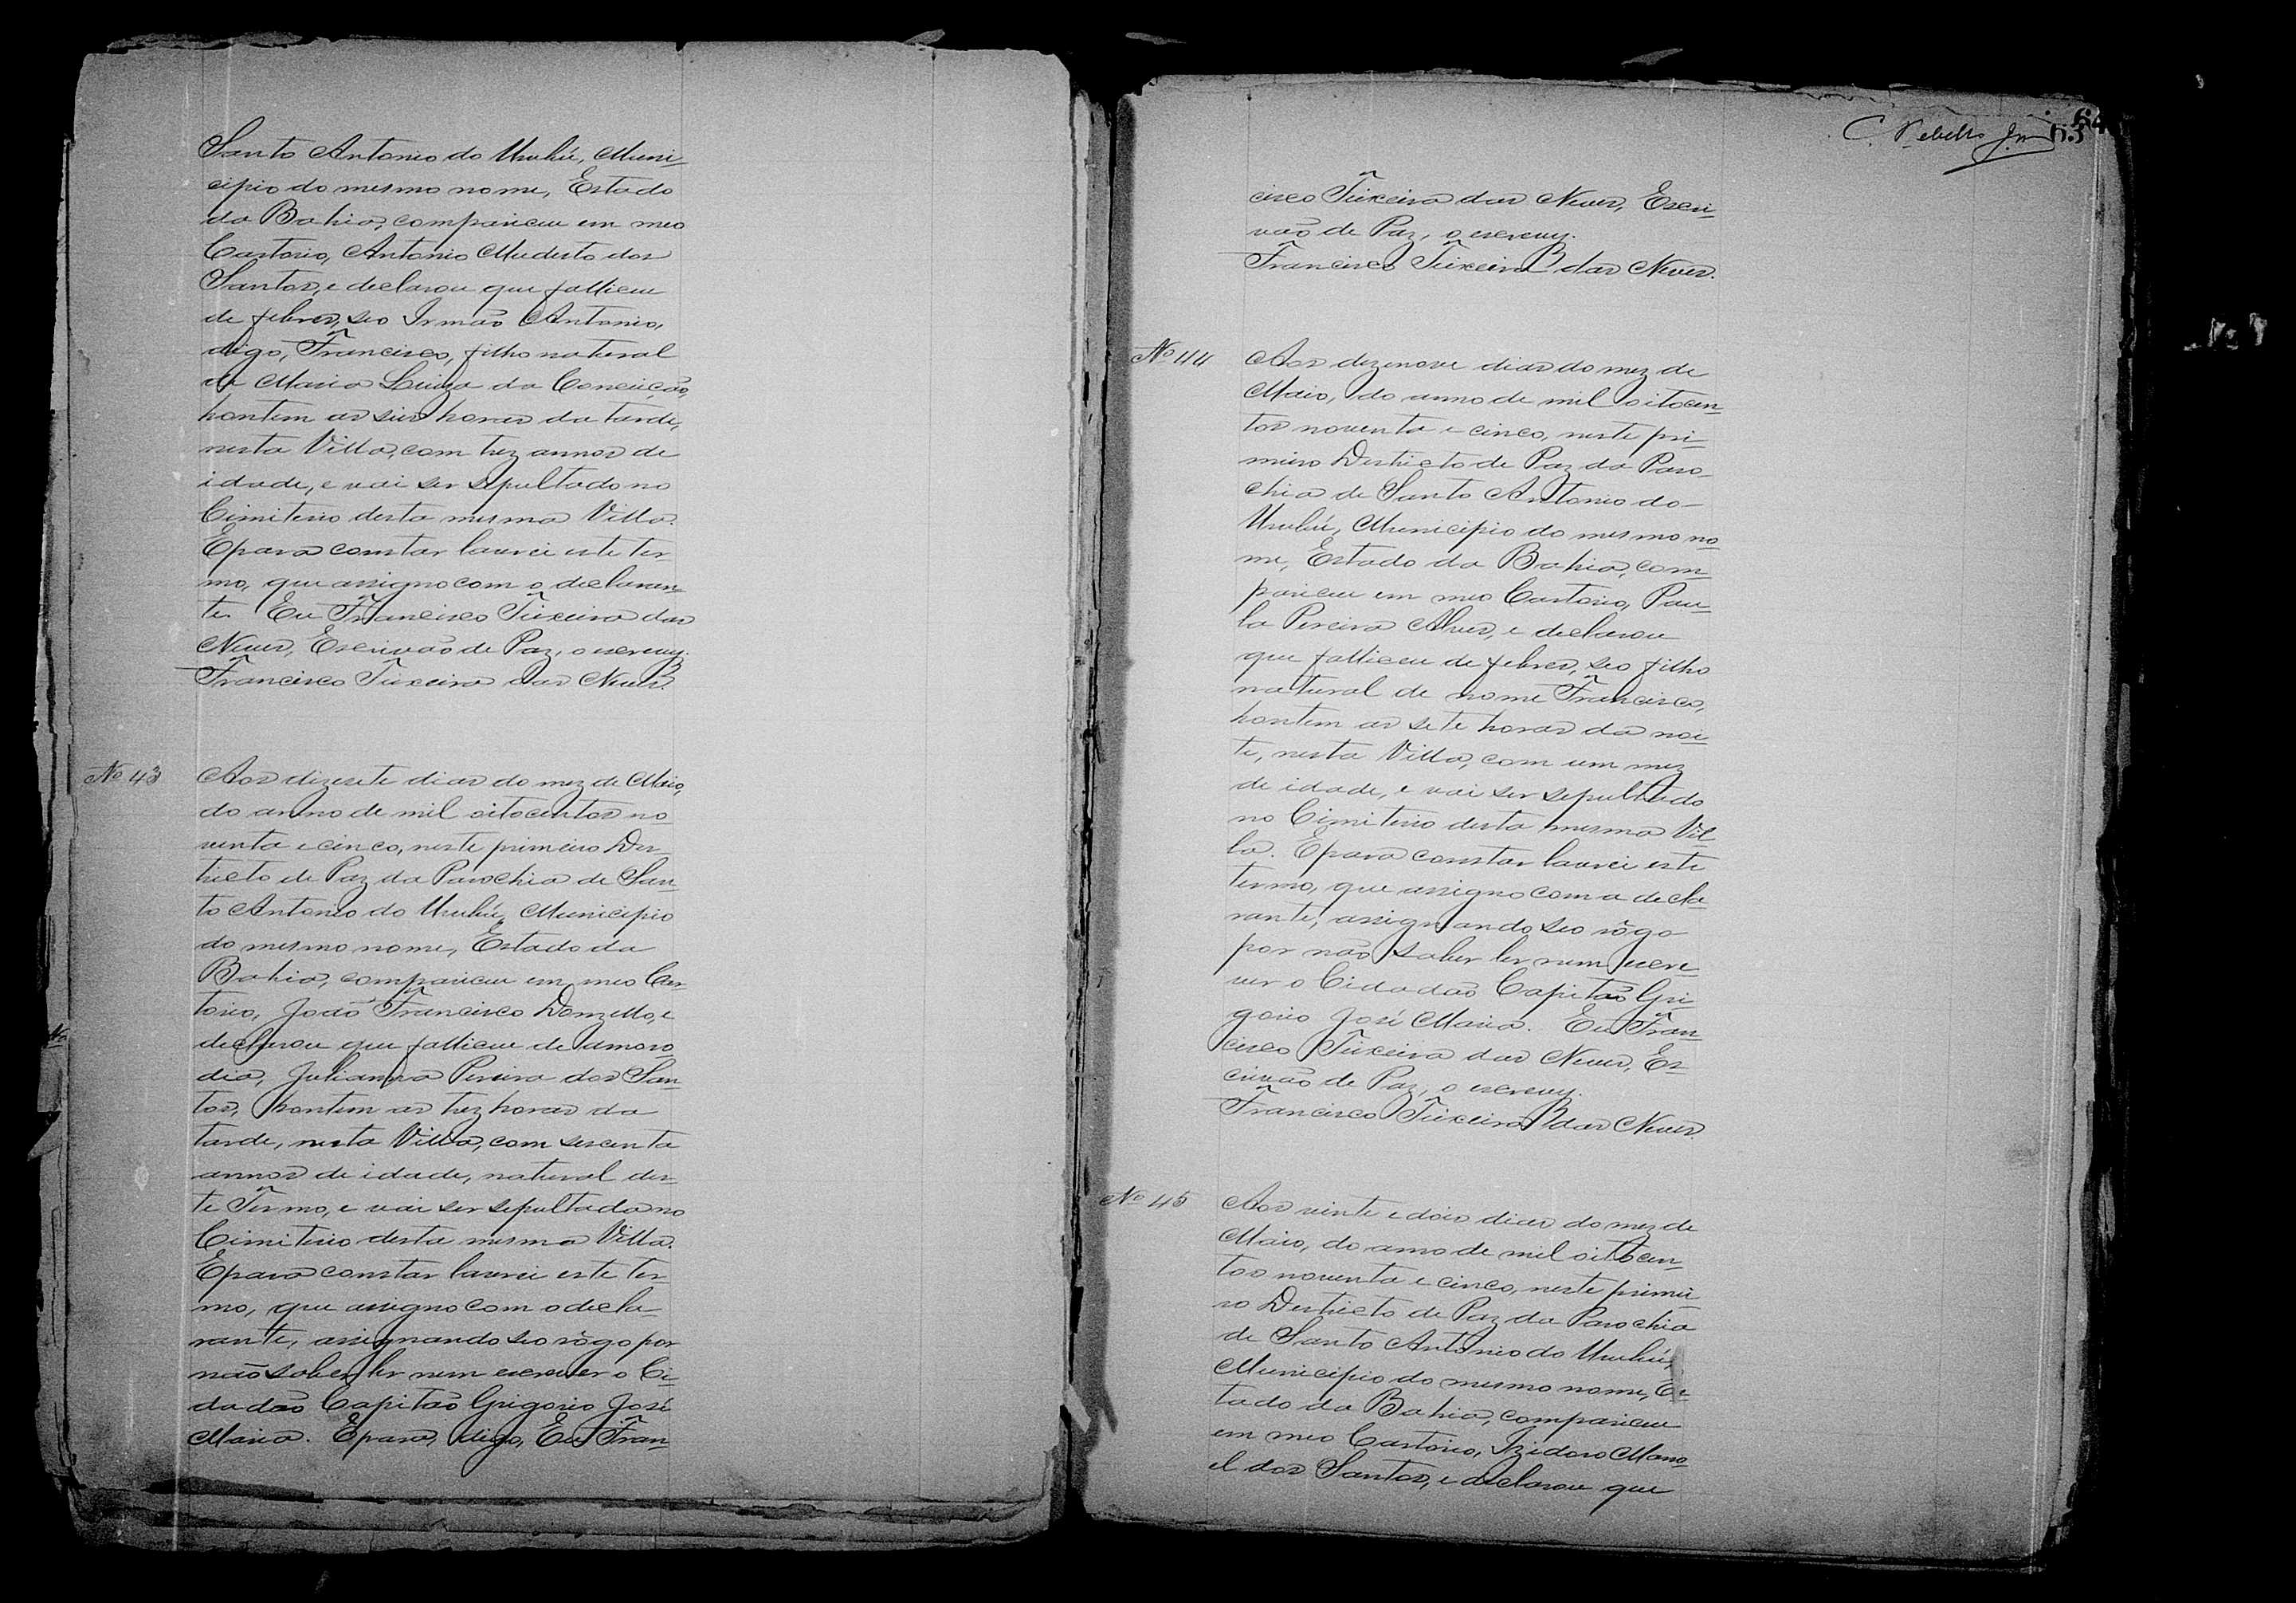 Santo Antonio do Urubú, Muni-
cipio do mesmo nome, Estado
da Bahia, compareceu em meo
Cartorio, Antonio Modesto dos
Santos, e declarou que falleceu
de febres, seo Irmão Antonio,
digo, Francisco, filho natural
de Maria Luiza da Conceição,
hontem as seis horas da tarde,
nesta Villa, com trez annos de
idade, e vai ser sepultado no
Cimiterio desta mesma Villa.
E para constar lavrei este ter-
mo, que assigno com o declaran-
te. Eu Francisco Teixeira das
Neves, Escrivão de Paz, o escrevy.
Francisco Teixeira das Neves.
Nº 43
Aos dizesete dias do mez de Maio,
do anno de mil oitocentos no-
venta e cinco, neste primeiro Des-
tricto de Paz da Parochia de San-
to Antonio do Urubú, Municipio
do mesmo nome, Estado da
Bahia, compareceu em meo Car-
torio, João Francisco Donzello, e
declarou que falleceu de amoro-
dia, Julianna Pereira dos San-
tos, hontem as trez horas da
tarde, nesta Villa, com sescenta
annos de idade, natural des-
te Termo, e vai ser sepultada no
Cimiterio desta mesma Villa.
E para constar lavrei este ter-
mo, que assigno com o decla-
rante, assignando seo rôgo por
não saber ler nem escrever o Ci-
dadão Capitão Grigorio José
Maria. E para, digo, Eu Fran-
C. Rebello Jnr
63
64
cisco Teixeira das Neves, Escri-
vão de Paz, o escrevy.
Francisco Teixeira das Neves.
Nº 44
Aos dezenove dias do mez de
Maio, do anno de mil oitocen-
tos noventa e cinco, neste pri-
meiro Destricto de Paz da Paro-
chia de Santo Antonio do
Urubú, Municipio do mesmo no-
me, Estado da Bahia, com-
pareceu em meo Cartorio, Pau-
la Pereira Alves, e declarou
que falleceu de febres, seo filho
natural de nome Francisco,
hontem as sete horas da noi-
te, nesta Villa, com um mez
de idade, e vai ser sepultado
no Cimiterio desta mesma Vil-
la. E para constar lavrei este
termo, que assigno com a decla-
rante, assignando seo rôgo
por não saber ler nem escre-
ver o Cidadão Capitão Gri-
gorio José Maria. Eu Fran-
cisco Teixeira das Neves, Es-
crivão de Paz, o escrevy.
Francisco Teixeira das Neves
Nº 45
Aos vinte e dois dias do mez de
Maio, do anno de mil oitocen-
tos noventa e cinco, neste primei-
ro Destricto de Paz da Parochia
de Santo Antonio do Urubú,
Municipio do mesmo nome, Es-
tado da Bahia, compareceu
em meo Cartorio, Izidoro Mano-
el dos Santos, e declarou que